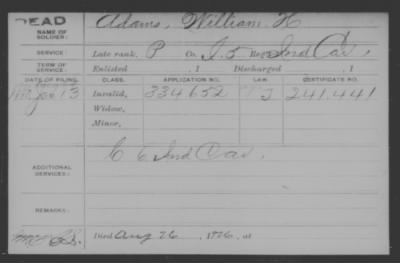 DEAD
NAME OF SOLDIER: Adams, William H
SERVICE: Late rank, P Co. I. 5 Reg't Ind Cav.
TERM OF SERVICE: Enlisted , 1 Discharged , 1
DATE OF FILING. CLASS. APPLICATION NO. LAW. CERTIFICATE NO.
13 Invalid, 334652 J 241,441
Widow,
Minor,
C 6 Ind Cav.
ADDITIONAL SERVICES:
REMARKS:
Died Aug 26, 1926, at